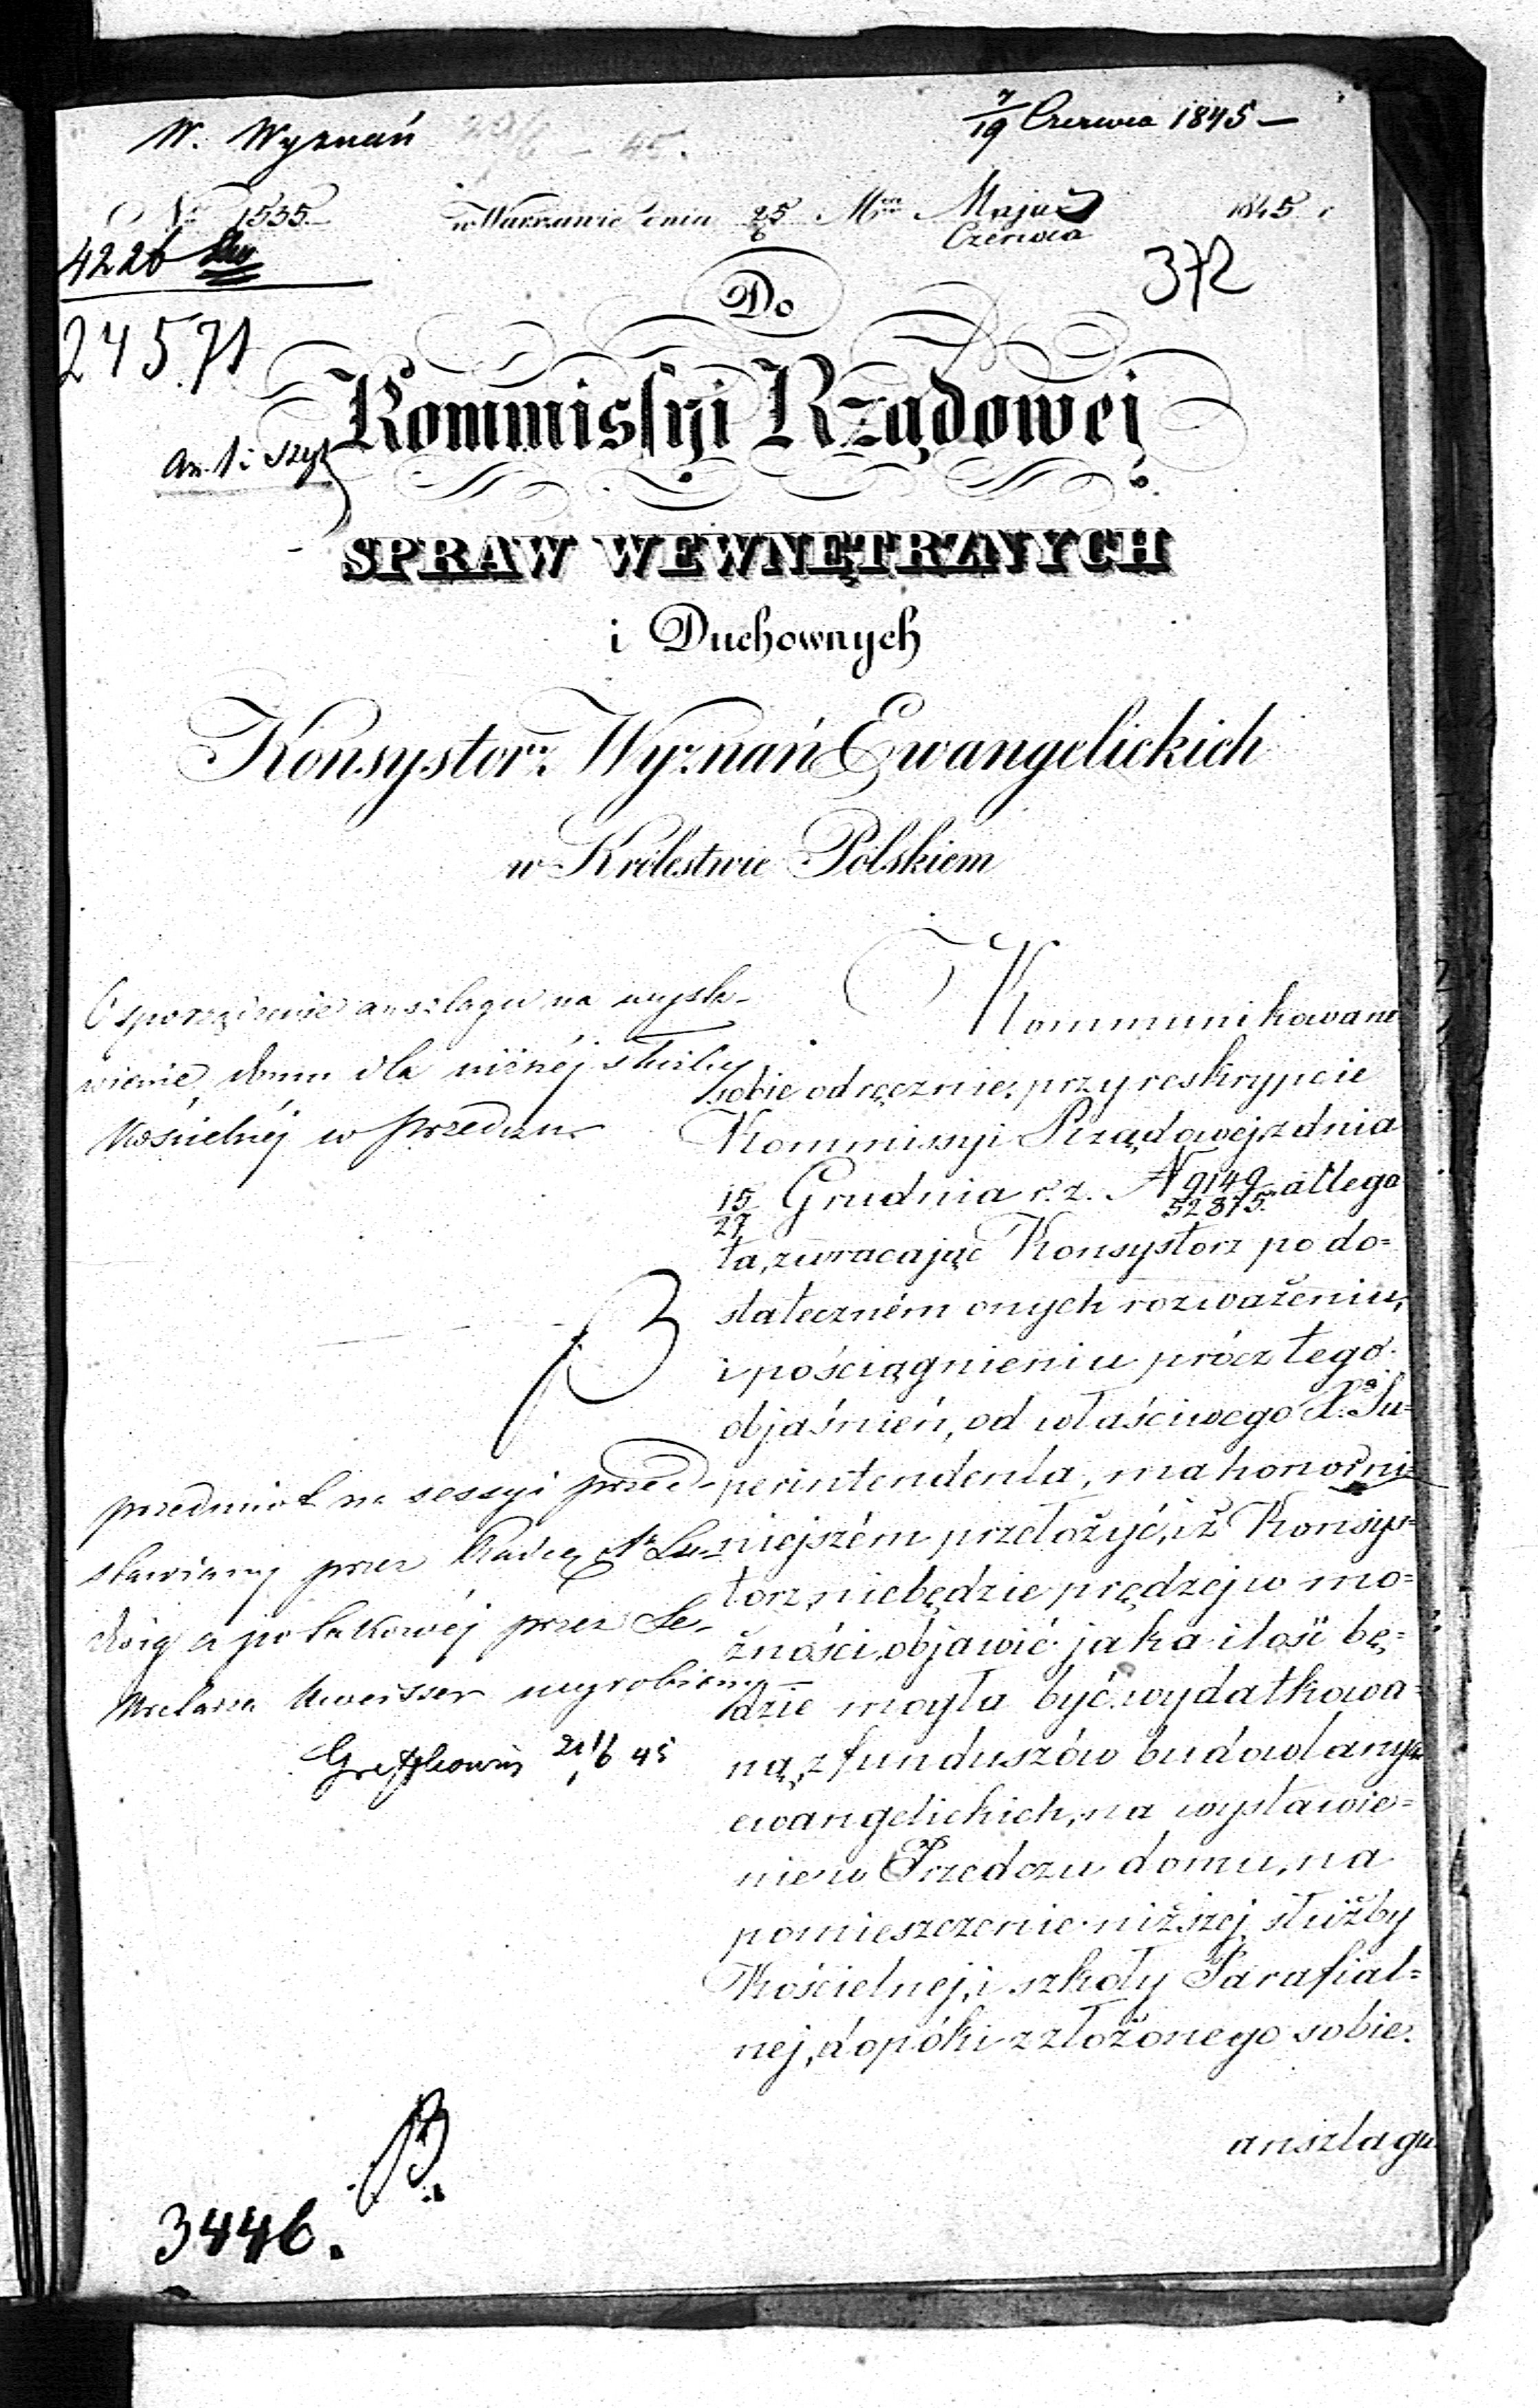 W. Wyznań
7/19 Czerwca 1845 —
Nr 1535.
w Warszawie dnia 25/6 Mca Maja/Czerwca 1845 r
4226
24571
372
Do
Kommissyi Rządowej
SPRAW WEWNĘTRZNYCH
i Duchownych
Konsystorz Wyznań Ewangelickich
w Królestwie Polskiem
O sporządzenie anszlagu na wysta-
wienie domu dla niższéj służby
kościelnéj w Przedczu
przedmiot na sessyi przed-
stawiany przez Radcę
a po
przez Se-
kretarza wyrobiony
21/6 45
Kommunikowane
sobie odręcznie, przy reskrypcie
Kommissyi Rządowej z dnia
15/27 Grudnia r. z. N 9149/52875. allega
ta, zwracając Konsystorz po do=
stateczném onych rozważeniu,
i pościągnieniu prócz tego
objaśnień, od właściwego X. Su=
perintendenta, ma honor ni=
niejszém przełożyć, iż Konsys=
torz niebędzie prędzej w mo=
żności objawić jaka ilość bę=
dzie mogła być wydatkowa=
ną, z funduszów budowlanych
ewangelickich, na wystawie=
nie w Przedczu domu, na
pomieszczenie niższej służby
Kościelnej, i szkoły Parafial=
nej, dopóki z złożonego sobie
anszlagu
3446.